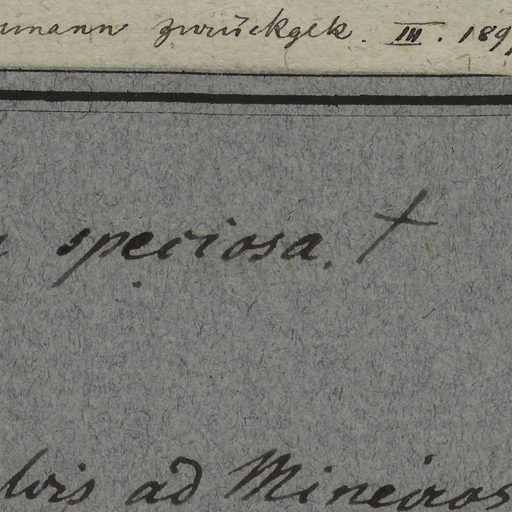 umann zurückgek. III. 189
speciosa. †
lvis ad Mineiros